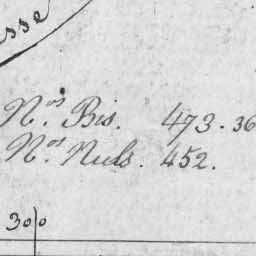 sse
N.os Bis. 473. 36
N.os Nuls. 452.
30